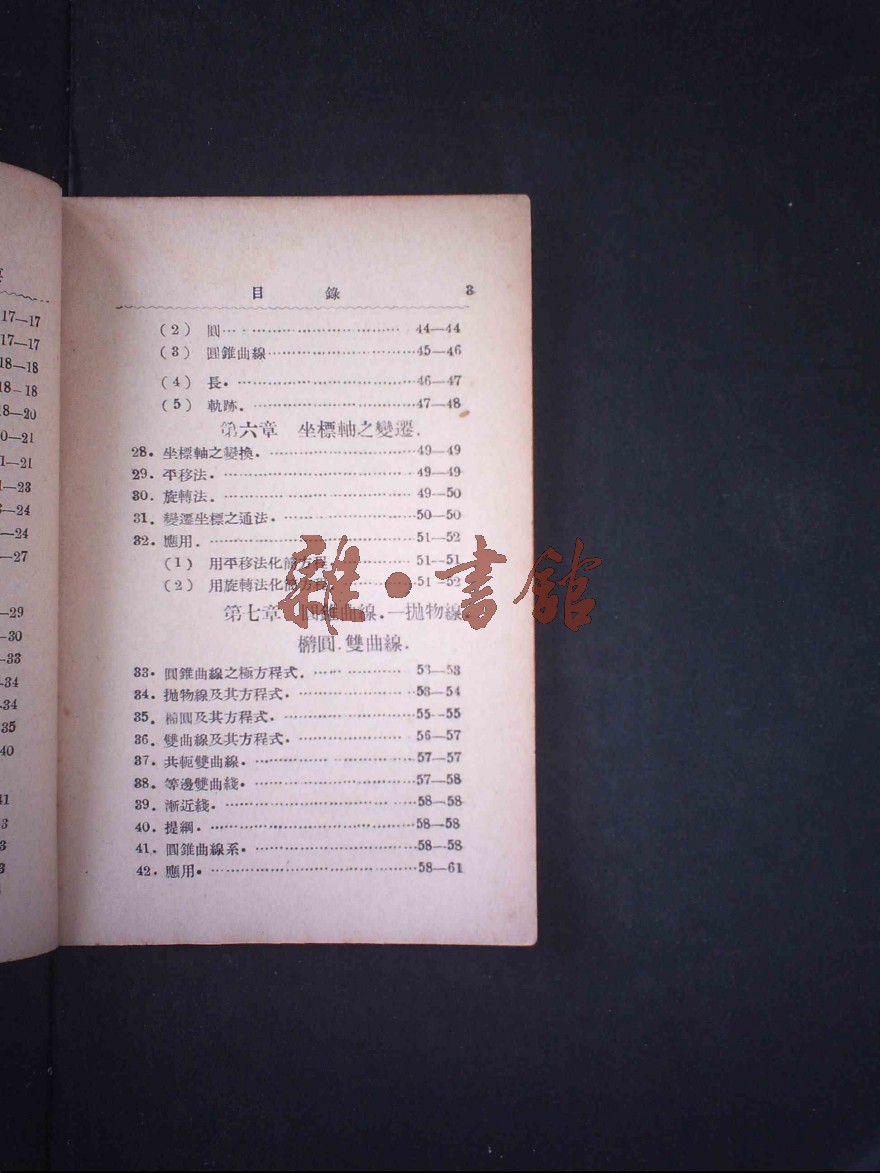 17—17
17—17
18—18
18—18
18—20
0—21
1—21
1—23
3—24
—24
—27
—29
—30
—33
—34
—34
35
40
41
3
3
3
目 錄 3
(2) 圓 44—44
(3) 圓錐曲線 45—46
(4) 長. 46—47
(5) 軌跡. 47—48
第六章 坐標軸之變遷.
28. 坐標軸之變換. 49—49
29. 平移法. 49—49
30. 旋轉法. 49—50
31. 變遷坐標之通法. 50—50
32. 應用. 51—52
(1) 用平移法化簡方程. 51—51
(2) 用旋轉法化簡方程. 51—52
第七章 圓錐曲線.—拋物線.
橢圓.雙曲線.
33. 圓錐曲線之極方程式. 53—53
34. 拋物線及其方程式. 53—54
35. 橢圓及其方程式. 55—55
36. 雙曲線及其方程式. 56—57
37. 共軛雙曲線. 57—57
38. 等邊雙曲綫. 57—58
39. 漸近綫. 58—58
40. 提綱. 58—58
41. 圓錐曲線系. 58—58
42. 應用. 58—61
雜·書館